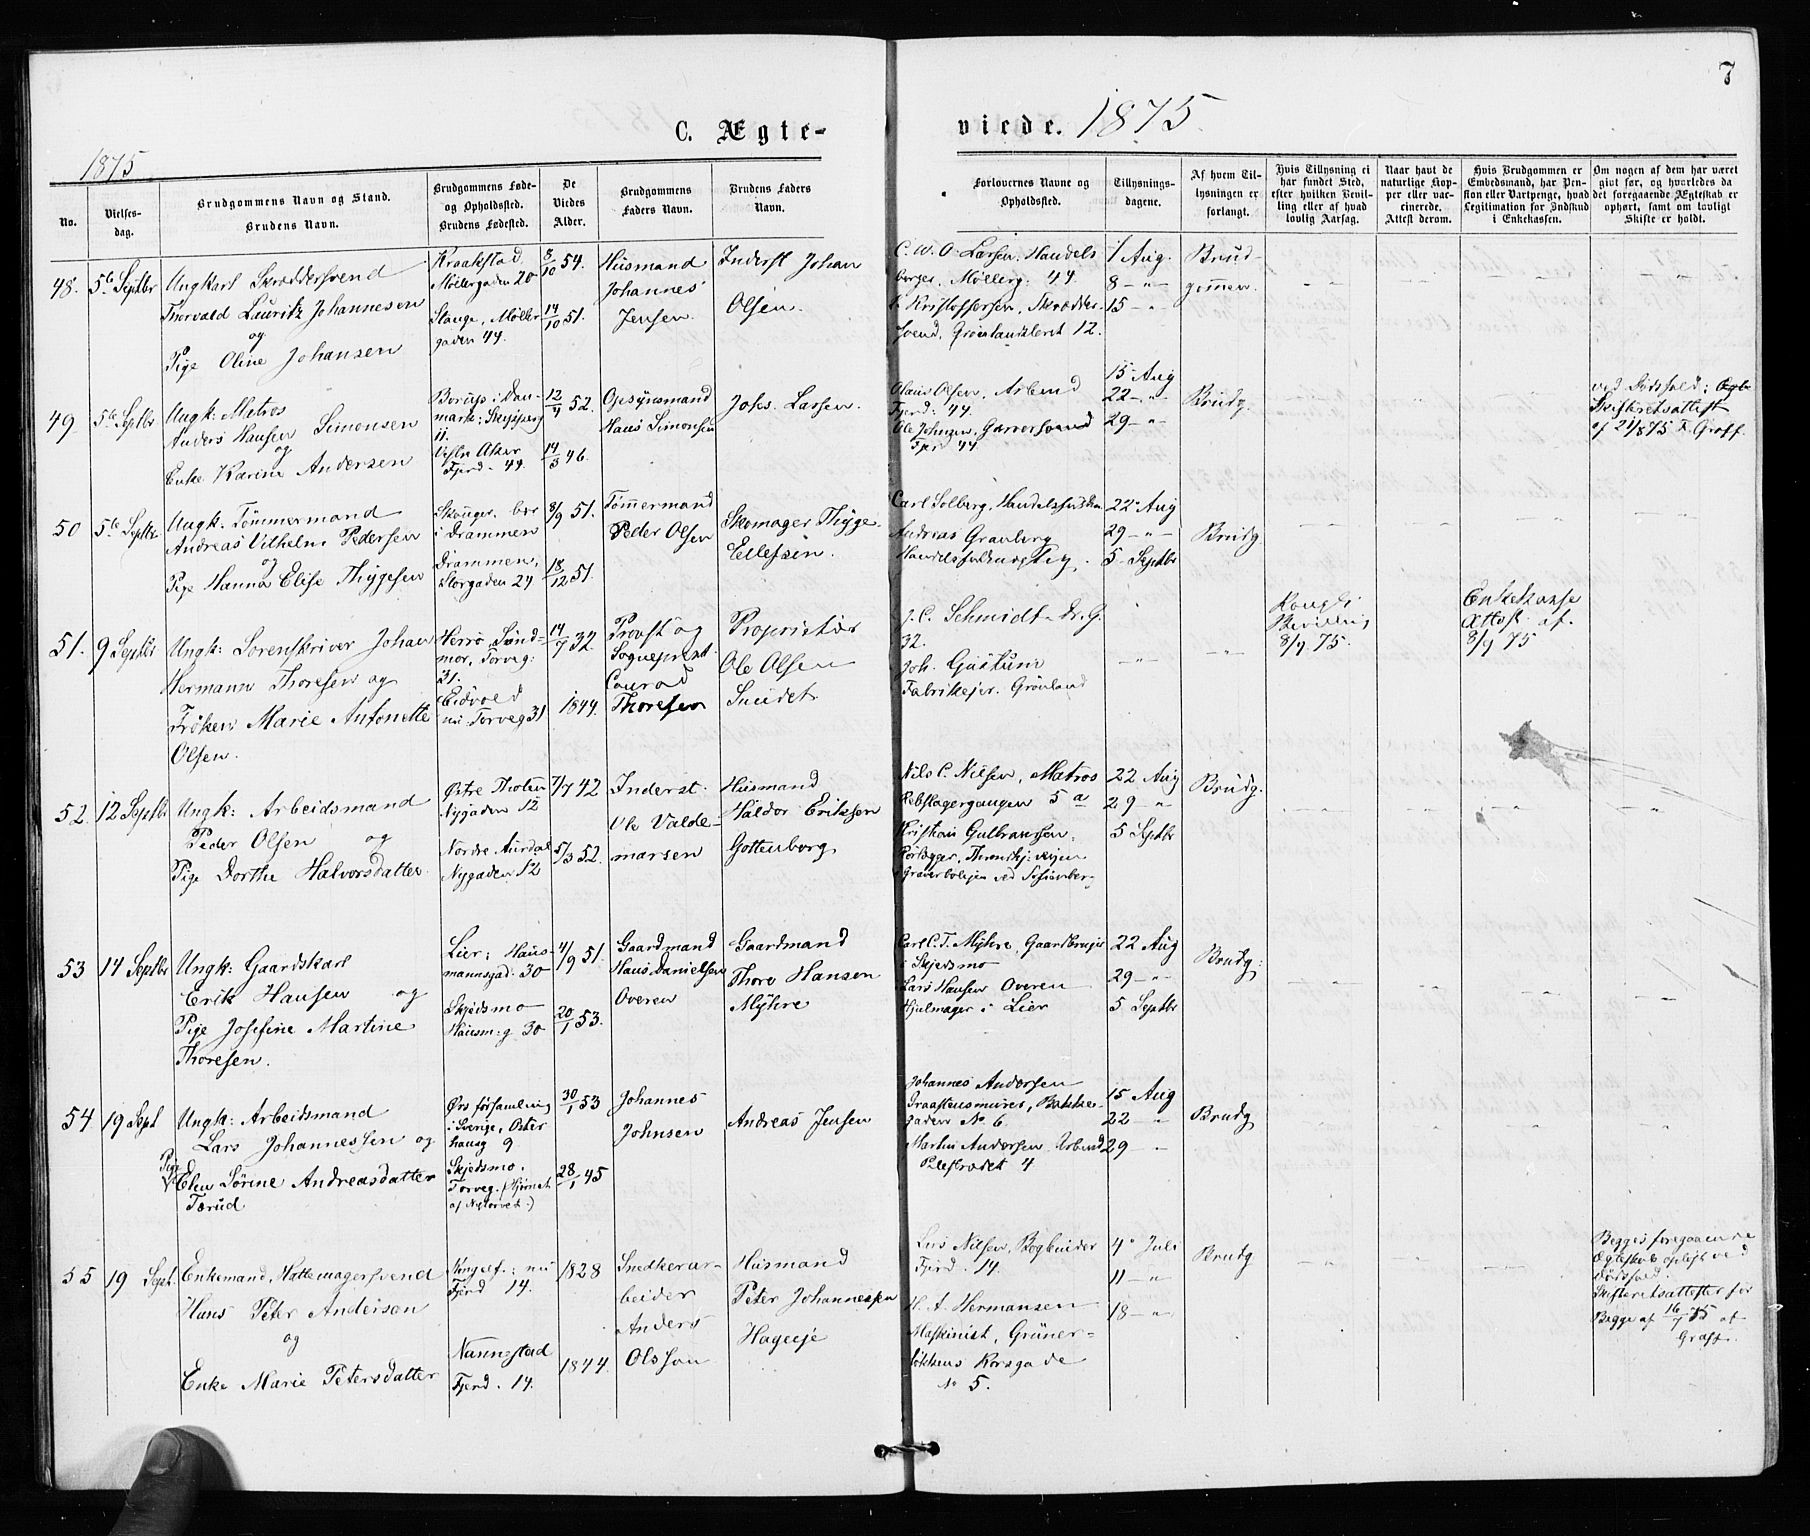 7
C. Ægte-
viede. 1875.
1875
No.
Vielses-
dag.
Brudgommens Navn og Stand.
Brudens Navn.
Brudgommens Føde-
og Opholdssted.
Brudens Fødested.
De
Viedes
Alder.
Brudgommens
Faders Navn.
Brudens Faders
Navn.
Forlovernes Navne og
Opholdssted.
Tillysnings-
dagene.
Af hvem Til-
lysningen er
forlangt.
Hvis Tillysning ei
har fundet Sted,
efter hvilken Bevil-
ling eller af hvad
lovlig Aarsag.
Naar havt de
naturlige Kop-
per eller vac-
cinerede.
Attest derom.
Hvis Brudgommen er
Embedsmand, har Pen-
sion eller Vartpenge, hvad
Legitimation for Indskud
i Enkekassen.
Om nogen af dem har været
givt før, og hvorledes da
det foregaaende Ægteskab er
ophørt, samt om lovligt
Skifte er holdt.
48. 5te Septbr
Ungkarl Skræddersvend
Thorvald Lauritz Johannesen
og
Pige Oline Johansen
Kraakstad
Møllergaden 20
Stange, Møller
gaden 44.
8/10 54.
14/10 51.
Husmand
Johannes
Jensen.
Inderst Johan
Olsen.
C. W. O. Larsen, Handels
borger, Møllerg. 44
Kristoffersen, Skrædder-
svend, Grønlandsleret 12.
1 Aug.
8 — "
15 — "
Brud-
gommen
49 5te Septbr
Ungk: Matros
Anders Hansen Simonsen
og
Enke Karine Andersen
Borup i Dan-
mark; Skipperg
11.
Vestre Aker
Fjerd. 44.
12/4 52.
14/3 46.
Opsynsmand
Hans Simonsen
Johs. Larsen.
Olaus Olsen, Arbmd
Fjerd: 44.
Ole Johnsen, Garversvend
Fjerd 44
15 Aug
22 — "
29 — "
Brudg.
ved Dødsfald;
Skifteretsattest
af 875 F. Graff.
50 5te Septbr
Ungk: Tømmermand
Andreas Vilhelm Pedersen
og
Pige Hanna Elise Thygesen
Skouger, bor
i Drammen
Drammen,
Storgaden 24
8/9 51.
18/12 51.
Tømmermand
Peder Olsen
Skomager Thyge
Ellefsen.
Carl Solberg,
Andreas Granberg
22 Aug
29 — "
5 Septbr
Brudg
51. 9 Septbr
Ungk: Sorenskriver Johan
Hermann Thoresen og
Frøken Marie Antonette
Olsen.
Herrø Sønd-
mør, Torveg:
31.
Eidvold
nu Torveg 31
14/7 32.
1844.
Provst og
Sognepræst
Conrad
Thoresen
Proprietær
Ole Olsen
J. C. Schmidt Dr. G.
32.
Joh. Gustum
Fabrikejer. Grønland
Kongl:
Bevilling
8/9 75.
Enkekasse
Attest af
8/9 75
52. 12 Septbr
Ungk: Arbeidsmand
Peder Olsen og
Pige Dorthe Halvorsdatter
Østre Thoten
Nygaden 12
Nordre Aurdal
Nygaden 12
7/7 42
5/3 52.
Inderst
Ole Valde-
marsen
Husmand
Haldor Eriksen
Gottenborg
Nils C. Nilsen, Matros
Rebslagergangen 5 a
Kristian Gulbransen,
22 Aug
29 "
5 Septbr
Brudg.
53 14 Septbr
Ungk: Gaardskarl
Erik Hansen og
Pige Josefine Martine
Thoresen.
Lier; Haus-
mannsgad: 30
Skjedsmo
Hausm: g. 30
4/9 51.
20/1 53.
Gaardmand
Hans Danielsen
Overen
Gaardmand
Thore Hansen
Myhre
Carl C. T. Myhre, Gaardbruger
i Skjedsmo
Lars Hansen Overen
Hjulmager i Lier
22 Aug
29 — "
5 Septbr
Brudg:
54 19 Sept
Ungk: Arbeidsmand
Lars Johannessen og
Pige
Elen Sørine Andreasdatter
Tærud
Ørs forsamling
i Sverige, Oster
hausg 9
Skjedsmo.
Torveg. (Hjørnet
af Nytorvet:)
30/1 53
28/1 45
Johannes
Johnsen
Andreas Jensen
Johannes Andersen
Graastensmurer, Bakke-
gaden No 6.
Martin Andersen Arbmd
Pilestrædet 4
15 Aug
22 — "
29 — "
Brudg
55 19 Sept.
Enkemand, Hattemagersvend
Hans Peter Anderson
og
Enke Marie Petersdatter
Kongelf.; nu
Fjerd 14.
Nannestad
Fjerd. 14.
1828
1844.
Snedkerar-
beider
Anders
Olsson
Husmand
Peter Johannessen
Hageeje
Lars Nilsen, Bogbinder
Fjerd. 14.
H. A. Hermansen
Maskinist, Grüner-
løkkens Korsgade
No 5.
4 Juli
11 — "
18 — "
Brudg
Begges foregaaende
Ægteskab opløst ved
Dødsfald.
Skifteretsattester for
Begge af 16/7 75 af
Graff.